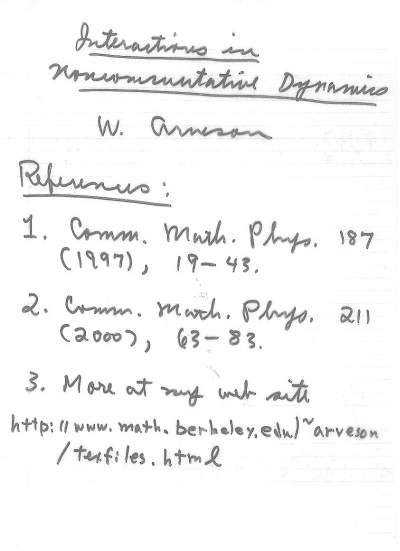 Interactions in
Noncommutative Dynamics
W. Arveson
References:
1. Comm. Math. Phys. 187
(1997), 19-43.
2. Comm. Math. Phys. 211
(2000), 63-83.
3. More at my web site
http://www.math.berkeley.edu/~arveson
/texfiles.html